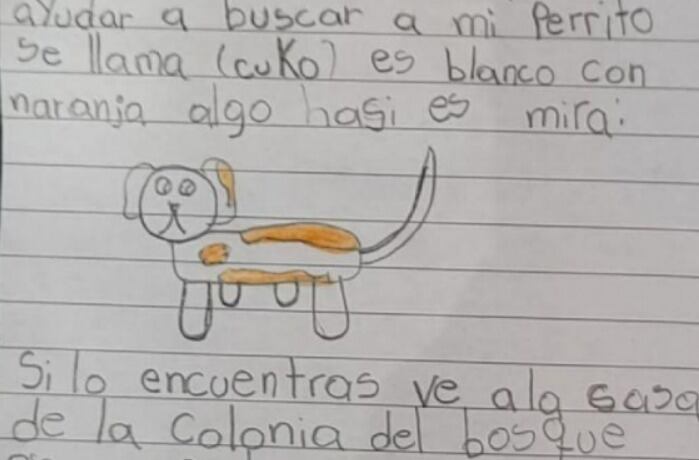 ayudar a buscar a mi Perrito
se llama (cuKo) es blanco con
naranja algo hasi es mira:
Si lo encuentras ve ala casa
de la Colonia del bosque